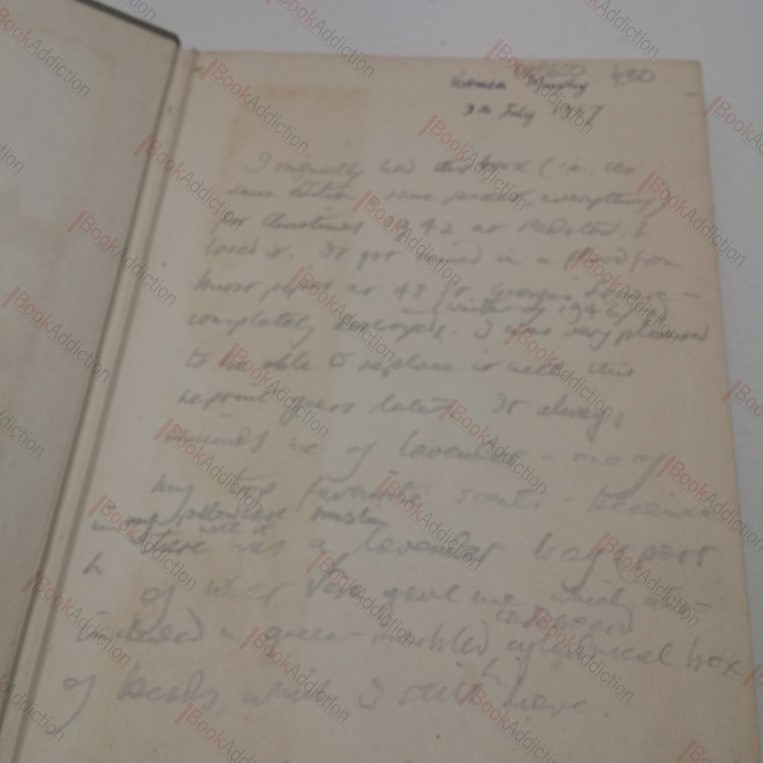 480
3rd July 1957
I originally had this book (in the
same edition, same jacket, everything)
for Christmas 1942 at
loved it. It got ruined in a flood from
burst pipes at 48 St. George's Square —
(winter of 1946/
completely destroyed. I was very pleased
to be able to replace it with this
reprint years later. It always
reminds me of lavender – one of
my favourite scents – because
with it
there was a lavender bag, part
of what Vera gave me, which
in a green-marbled cylindrical box
of beads, which I still have.
BookAddiction